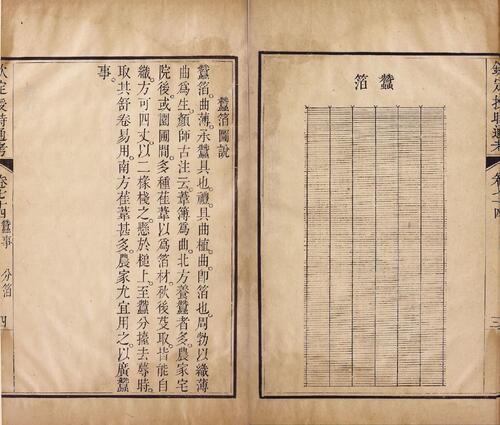 欽定授時通考
卷七十四
三
蠶箔
蠶箔圖說
蠶箔。曲薄。承蠶具也。禮。具曲植。曲。即箔也。周勃以織薄
曲爲生。顏師古注云。葦簿爲曲。北方養蠶者多。農家宅
院後。或園圃間。多種萑葦。以爲箔材。秋後芟取。皆能自
織。方可四丈。以二椽棧之。懸於槌上。至蠶分擡去蓐時。
取其舒卷易用。南方萑葦甚多。農家尤宜用之。以廣蠶
事。
欽定授時通考
卷七十四
蠶事
分箔
四